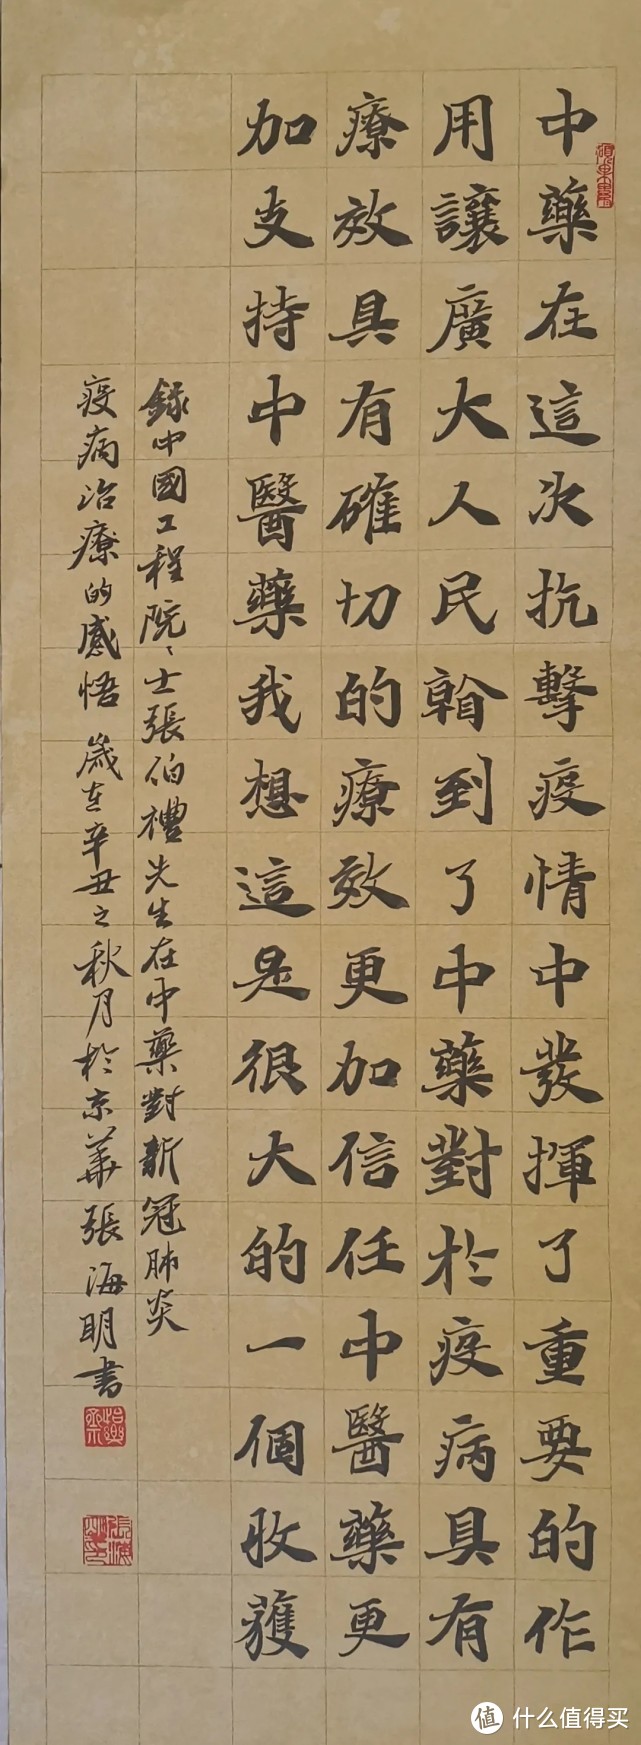 中藥在這次抗擊疫情中發揮了重要的作
用讓廣大人民看到了中藥對於疫病具有
療效具有確切的療效更加信任中醫藥更
加支持中醫藥我想這是很大的一個收穫
錄中國工程院〻士張伯禮先生在中藥對新冠肺炎
疫病治療的感悟 歲在辛丑之秋月於京華張海明書
值 什么值得买